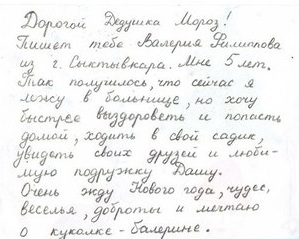 Дорогой Дедушка Мороз!
Пишет тебе Валерия Филиппова
из г. Сыктывкара. Мне 5 лет.
Так получилось, что сейчас я
лежу в больнице, но хочу
быстрее выздороветь и попасть
домой, ходить в свой садик,
увидеть своих друзей и люби-
мую подружку Дашу.
Очень жду Нового года, чудес,
веселья, доброты и мечтаю
о куколке-балерине.